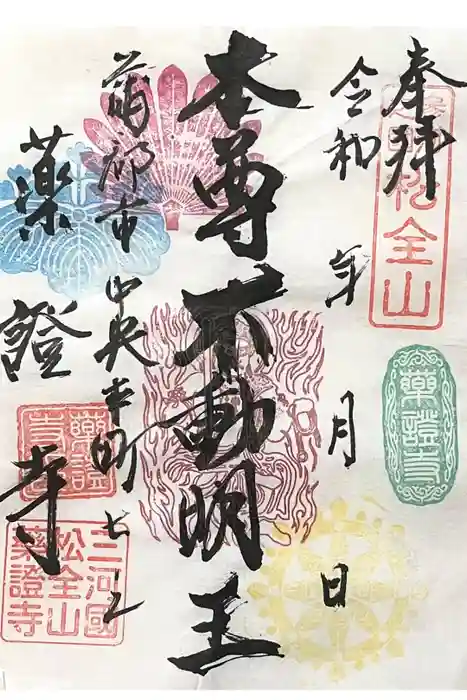 奉拝
松全山
令和 年 月 日
藥證寺
本尊 不動明王
蒲郡市 中央本町
薬 證 寺
藥證
三河國
松全山
藥證寺